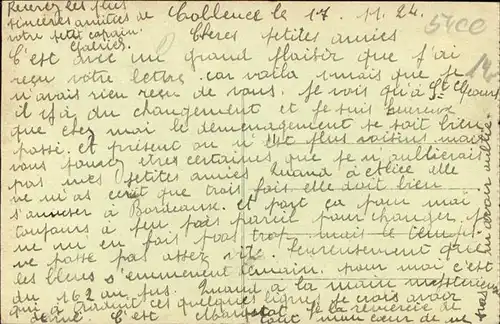 Recevez les plus
sincères amitiés de
votre petit copain
Gabriel
Coblence le 17. 11. 24.
54CC
14
Chères petites amies
C'est avec un grand plaisir que j'ai
reçu votre lettre car voila 1 mais que je
n'avais rien reçu de vous. Je vois qu'à St Geours
il y a du changement et je suis heureux
que chez moi le demenagement se soit bien
passé. et présent on n'est plus voisins mais
vous pouvez êtres certaines que je n'oublierais
pas mes petites amies. Quand à elle
ne m'as ecrit que trois fois elle doit bien
s'amuser à Bordeaux. et pour ça pour moi
toujours à peu près pareil pour changer. je
ne m'en fais pas trop mais le temps
ne passe pas assez vite. heureusement que
les bleus s'emmenent demain. pour moi c'est
du 162 au jus. Quand à la main mysterieuse
qui a ces quelques lignes je crois avoir
c'est Je la remercie de
tout mon cœur de ne
au revoir